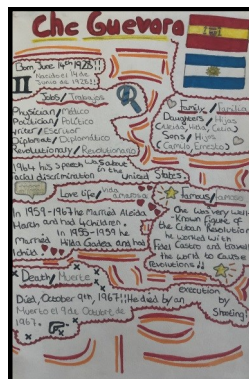 Che Guevara
Born June 14th 1928!!
Nacido el 14 de
Junio de 1928!!
Jobs/Trabajos
Physician/Médico
Politician/Político
Writer/Escritor
Diplomat/Diplomático
Revolutionary/Revolucionario
Family/Familia
Daughters/Hijas
(Aleida, Hilda, Celia)
Sons/Hijos
(Camilo, Ernesto)
1964 his speech was about
racial discrimination in the United States.
Love life/Vida amorosa
In 1959-1967 he married Aleida
March and had 4 children.
In 1955-1959 he
Married Hilda Gadea and had
1 child
Famous/famoso
She was very well
-Known figure of
the Cuban Revolution
he worked with
Fidel Castro and
the world to cause
revolutions!!
Death/Muerte
Died, October 9th, 1967!! He died by an execution
by Shooting!
Muerto el 9 de Octubre de
1967.